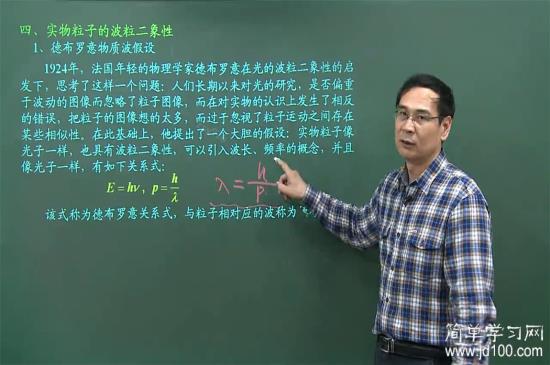 四、实物粒子的波粒二象性
1、德布罗意物质波假设
1924年，法国年轻的物理学家德布罗意在光的波粒二象性的启
发下，思考了这样一个问题：人们长期以来对光的研究，是否偏重
于波动的图像而忽略了粒子图像，而在对实物的认识上发生了相反
的错误，把粒子的图像想的太多，而过于忽视了粒子运动之间存在
某些相似性。在此基础上，他提出了一个大胆的假设：实物粒子像
光子一样，也具有波粒二象性，可以引入波长、频率的概念，并且
像光子一样，有如下关系式：
E=hν，p=h/λ
λ=h/p
该式称为德布罗意关系式，与粒子相对应的波称为
简单学习网
www.jd100.com